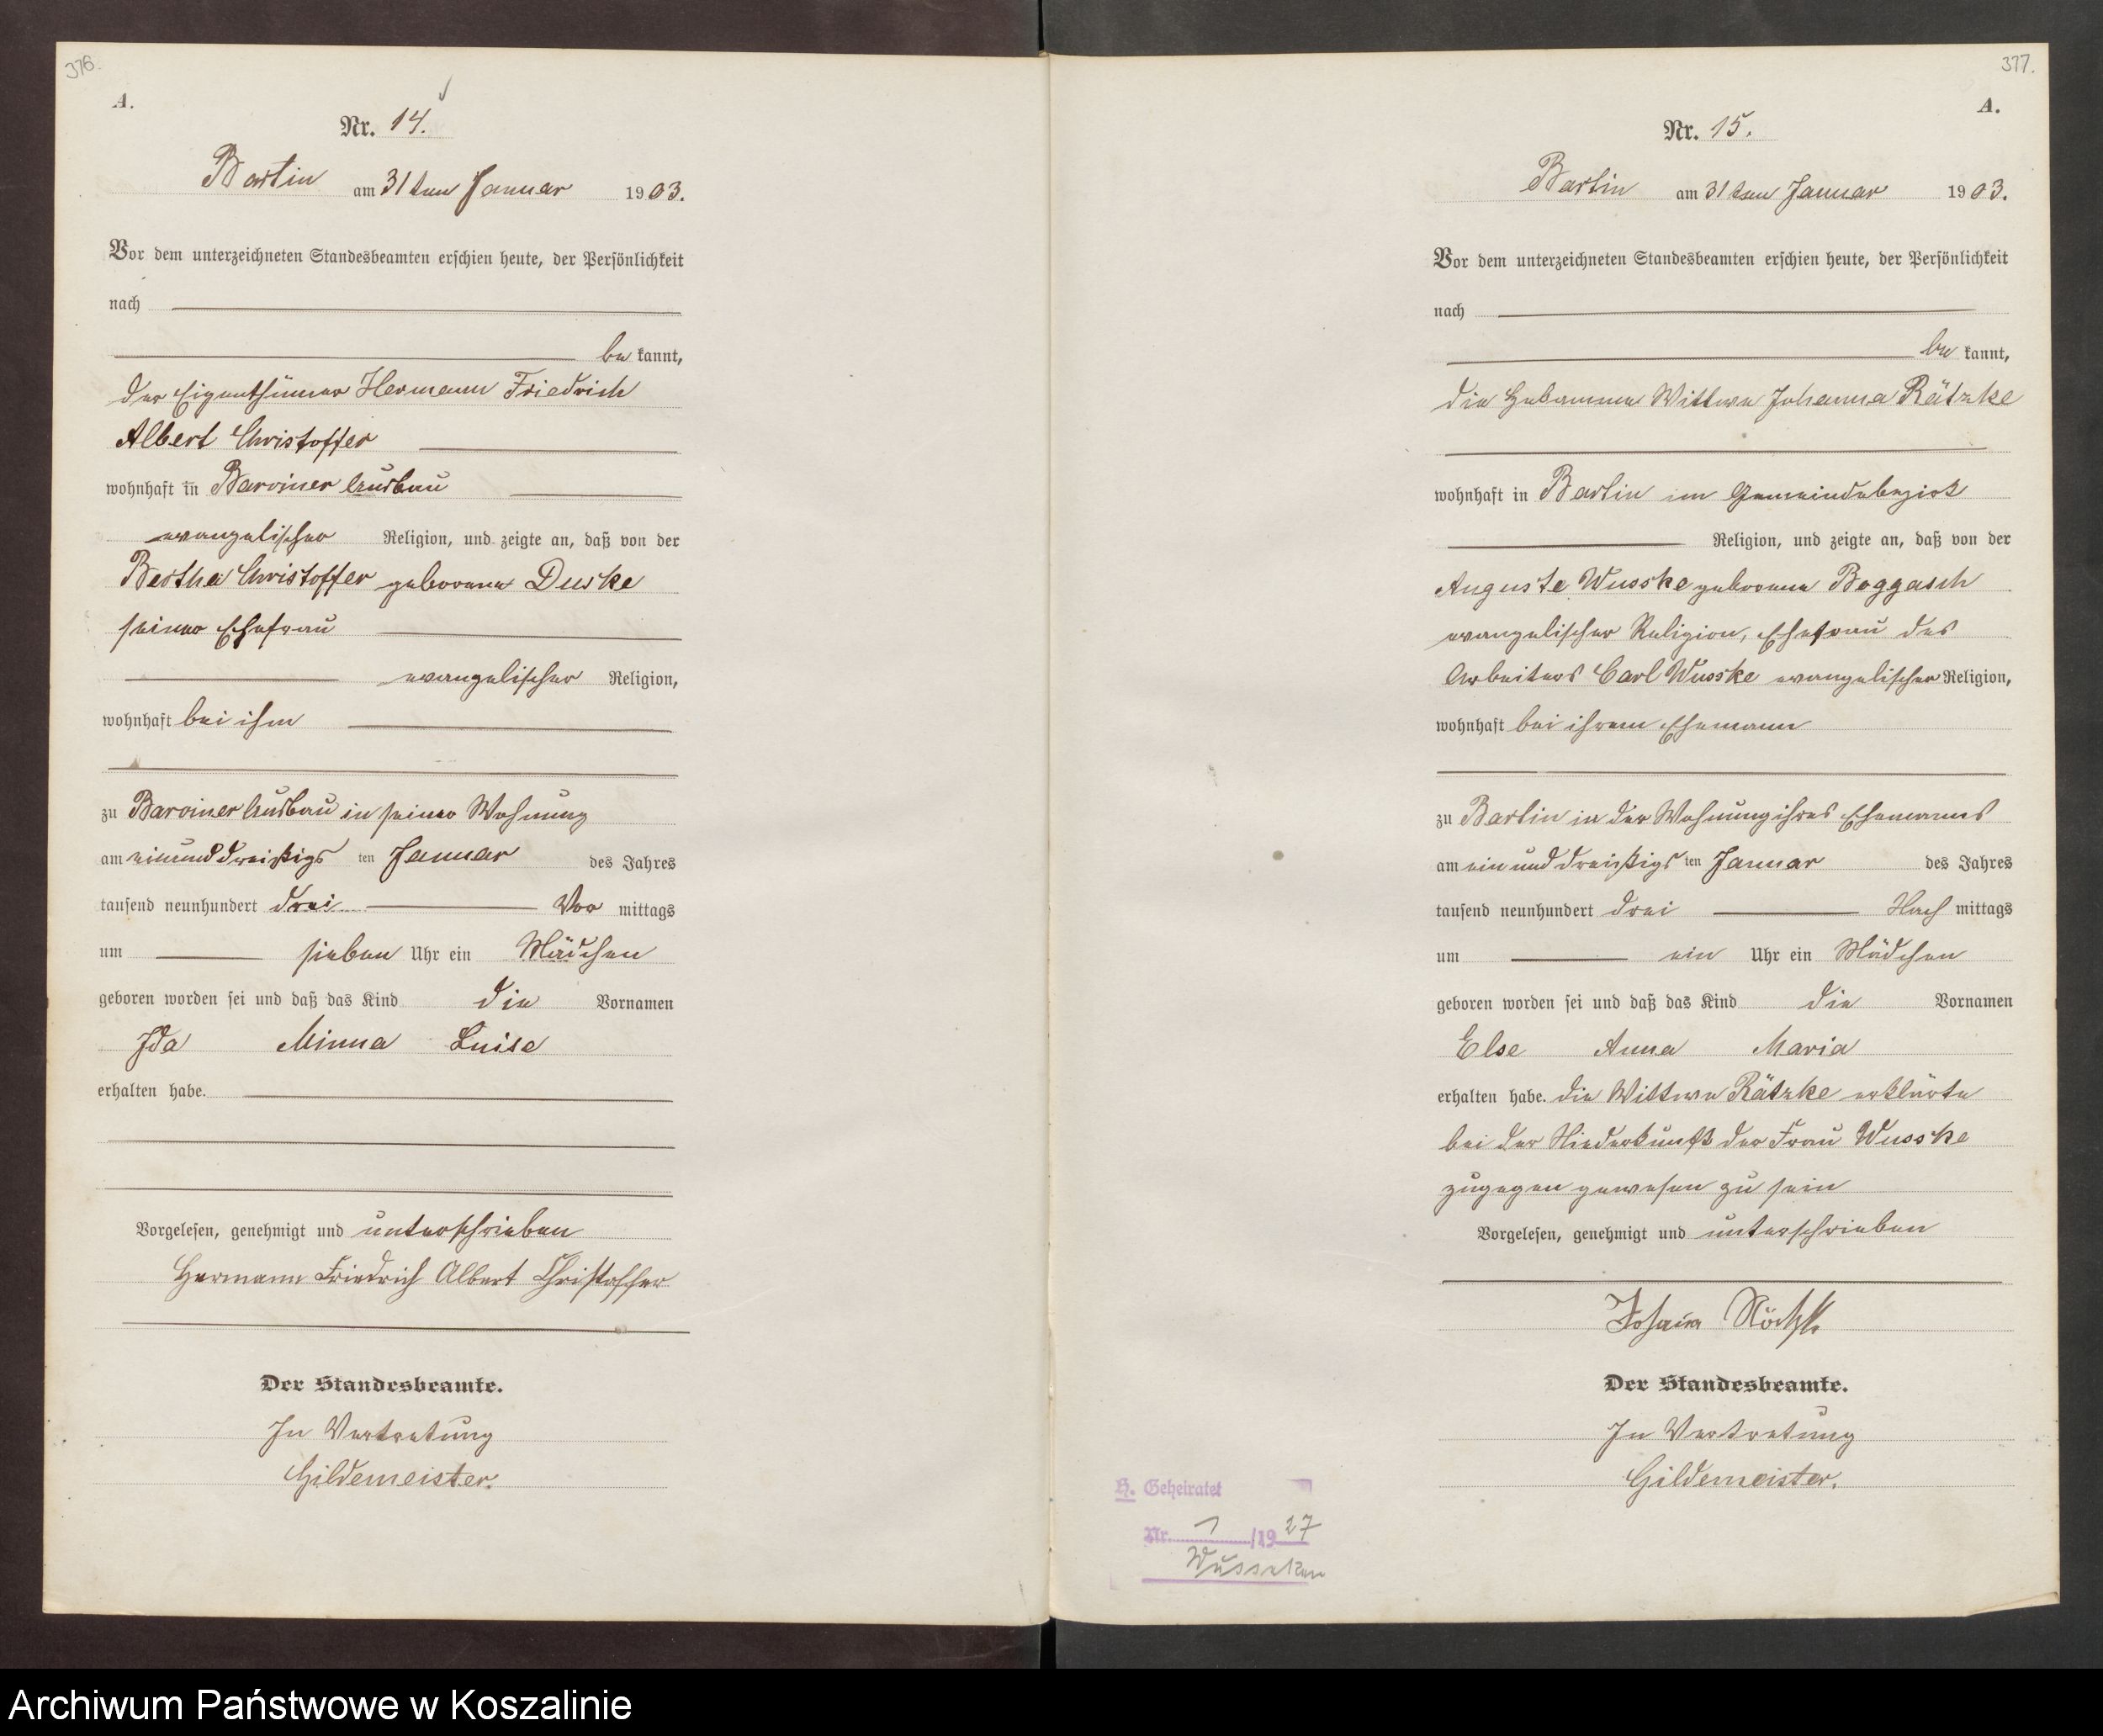 376.
A.
Nr. 14.
Bartin am 31ten Januar 1903.
Vor dem unterzeichneten Standesbeamten erschien heute, der Persönlichkeit
nach
be kannt,
der Eigenthümer Hermann Friedrich
Albert Christoffer
wohnhaft in Barviner Ausbau
evangelischer Religion, und zeigte an, daß von der
Bertha Christoffer geborene Duske
seiner Ehefrau
evangelischer Religion,
wohnhaft bei ihm
zu Barviner Ausbau in seiner Wohnung
am einunddreißigsten Januar des Jahres
tausend neunhundert drei Vor mittags
um sieben Uhr ein Mädchen
geboren worden sei und daß das Kind die Vornamen
Ida Minna Luise
erhalten habe.
Vorgelesen, genehmigt und unterschrieben
Hermann Friedrich Albert Christoffer
Der Standesbeamte.
In Vertretung
Gildemeister.
377.
A.
Nr. 15.
Bartin am 31ten Januar 1903.
Vor dem unterzeichneten Standesbeamten erschien heute, der Persönlichkeit
nach
be kannt,
die Hebamme Wittwe Johanna Rätzke
wohnhaft in Bartin im Gemeindebezirk
Religion, und zeigte an, daß von der
Auguste Wusske geborene Boggasch
evangelischer Religion, Ehefrau des
Arbeiters Carl Wusske evangelischer Religion,
wohnhaft bei ihrem Ehemann
zu Bartin in der Wohnung ihres Ehemanns
am ein und dreißigsten Januar des Jahres
tausend neunhundert drei Nach mittags
um ein Uhr ein Mädchen
geboren worden sei und daß das Kind die Vornamen
Else Anna Maria
erhalten habe. die Wittwe Rätzke erklärte
bei der Niederkunft der Frau Wusske
zugegen gewesen zu sein
Vorgelesen, genehmigt und unterschrieben
Der Standesbeamte.
In Vertretung
Gildemeister.
H. Geheiratet
Nr. 1 /1927
Wusseken
Archiwum Państwowe w Koszalinie